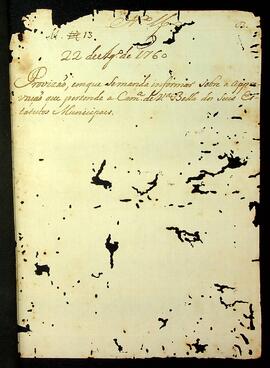 N. 13.
22 de Agᵗᵒ de 1760
Provizão, em que se manda informar sobre a app
vação que pertende a Comᶜᵃ de Vᵃ Bella dos seus Es
tatutos Municipaes.